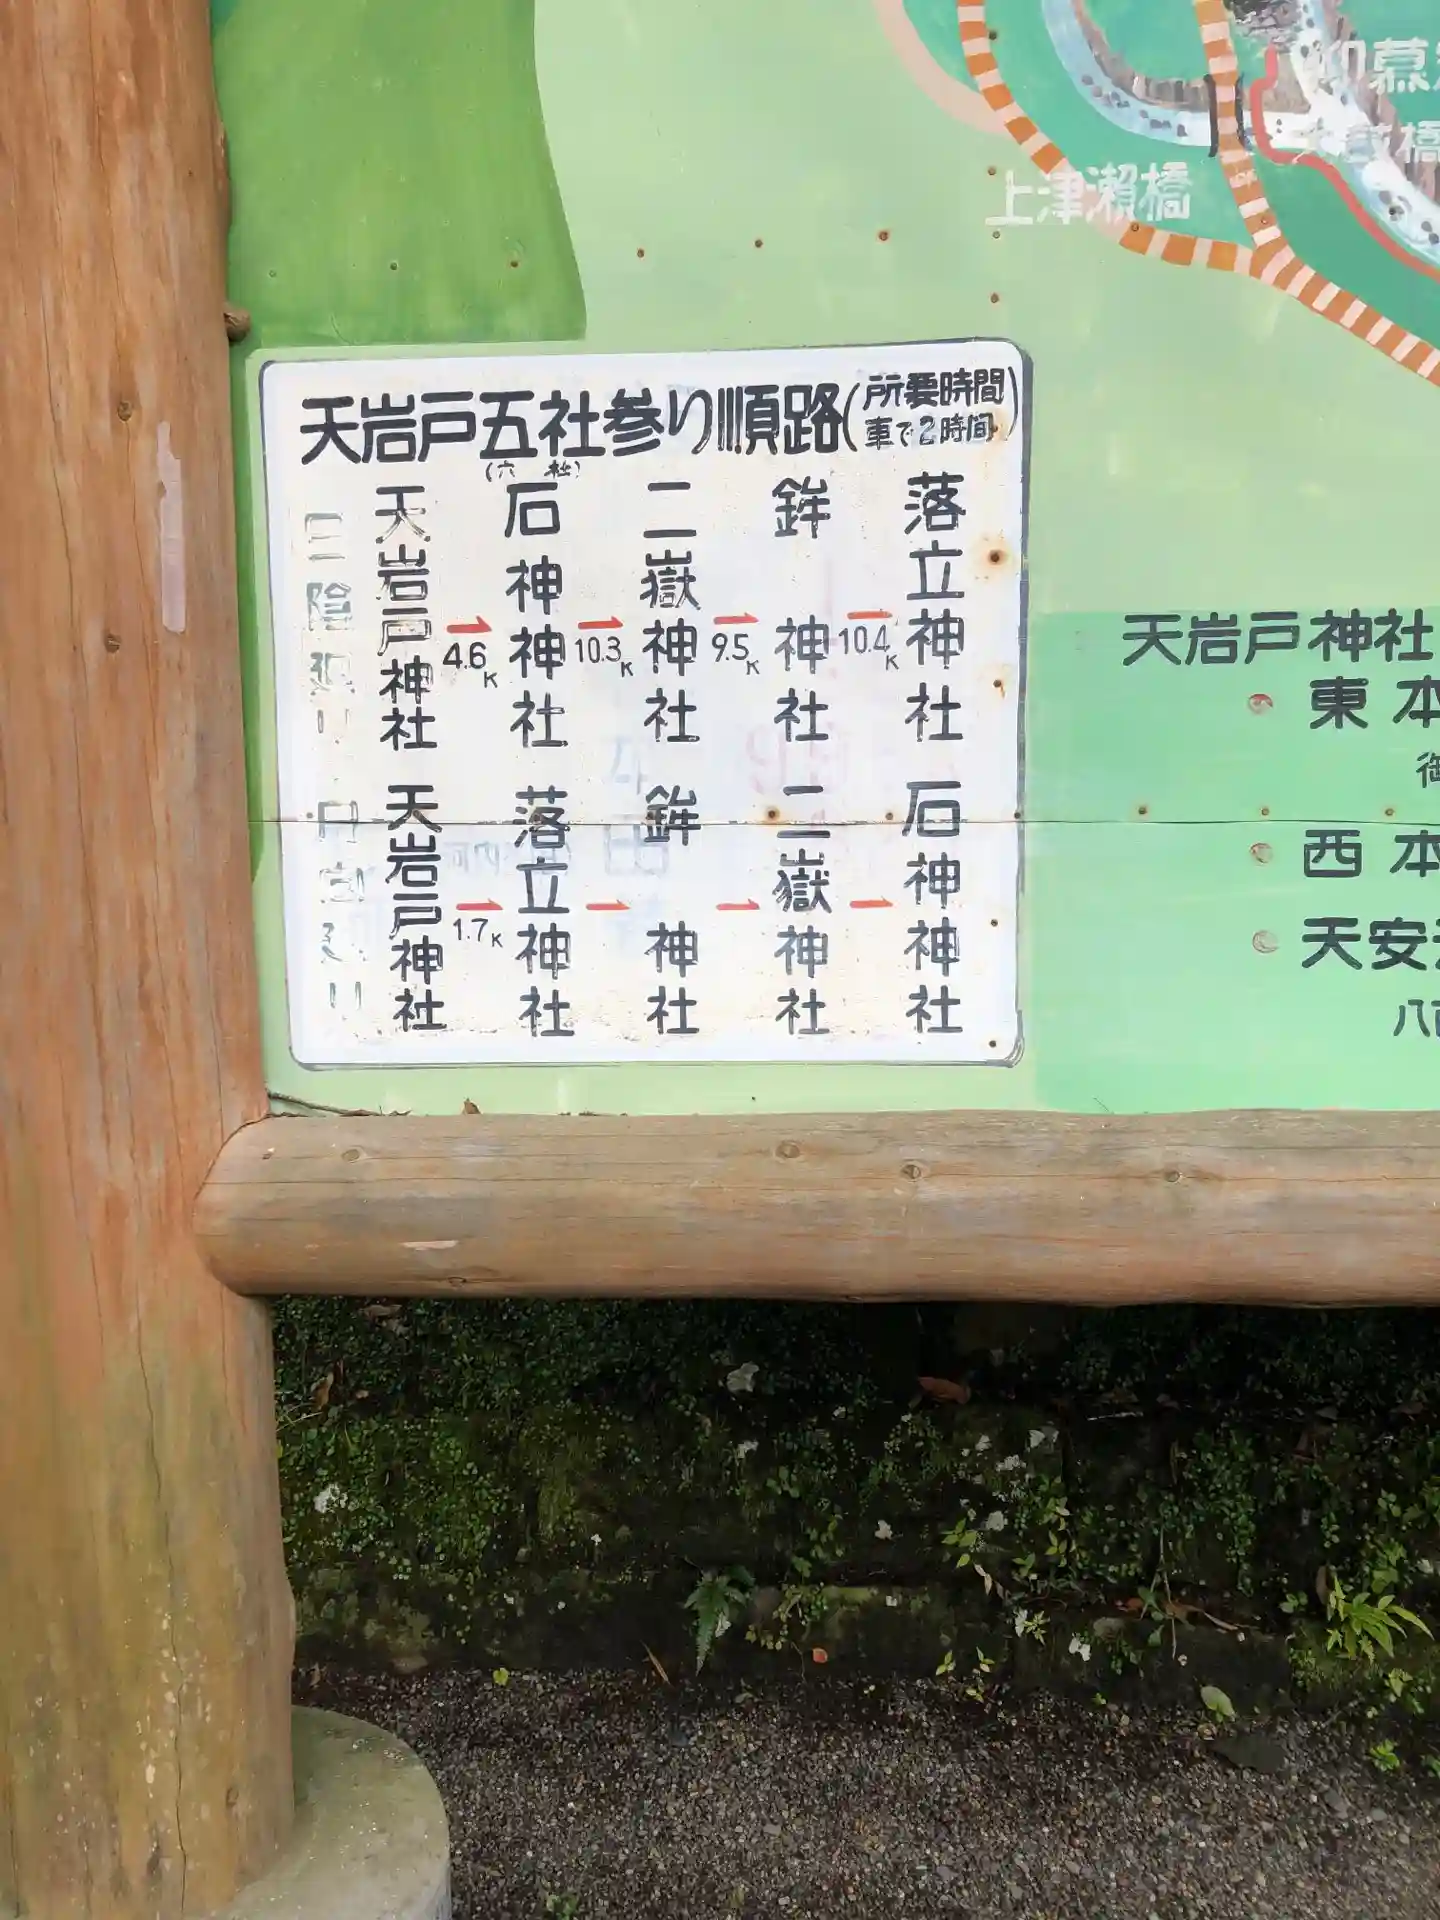 上津瀬橋
天岩戸五社参り順路(所要時間
車で2時間)
(六社)
天岩戸神社
4.6K
石神神社
10.3K
二嶽神社
9.5K
鉾神社
10.4K
落立神社
天岩戸神社
1.7K
落立神社
鉾神社
二嶽神社
石神神社
天岩戸神社
東本
西本
天安